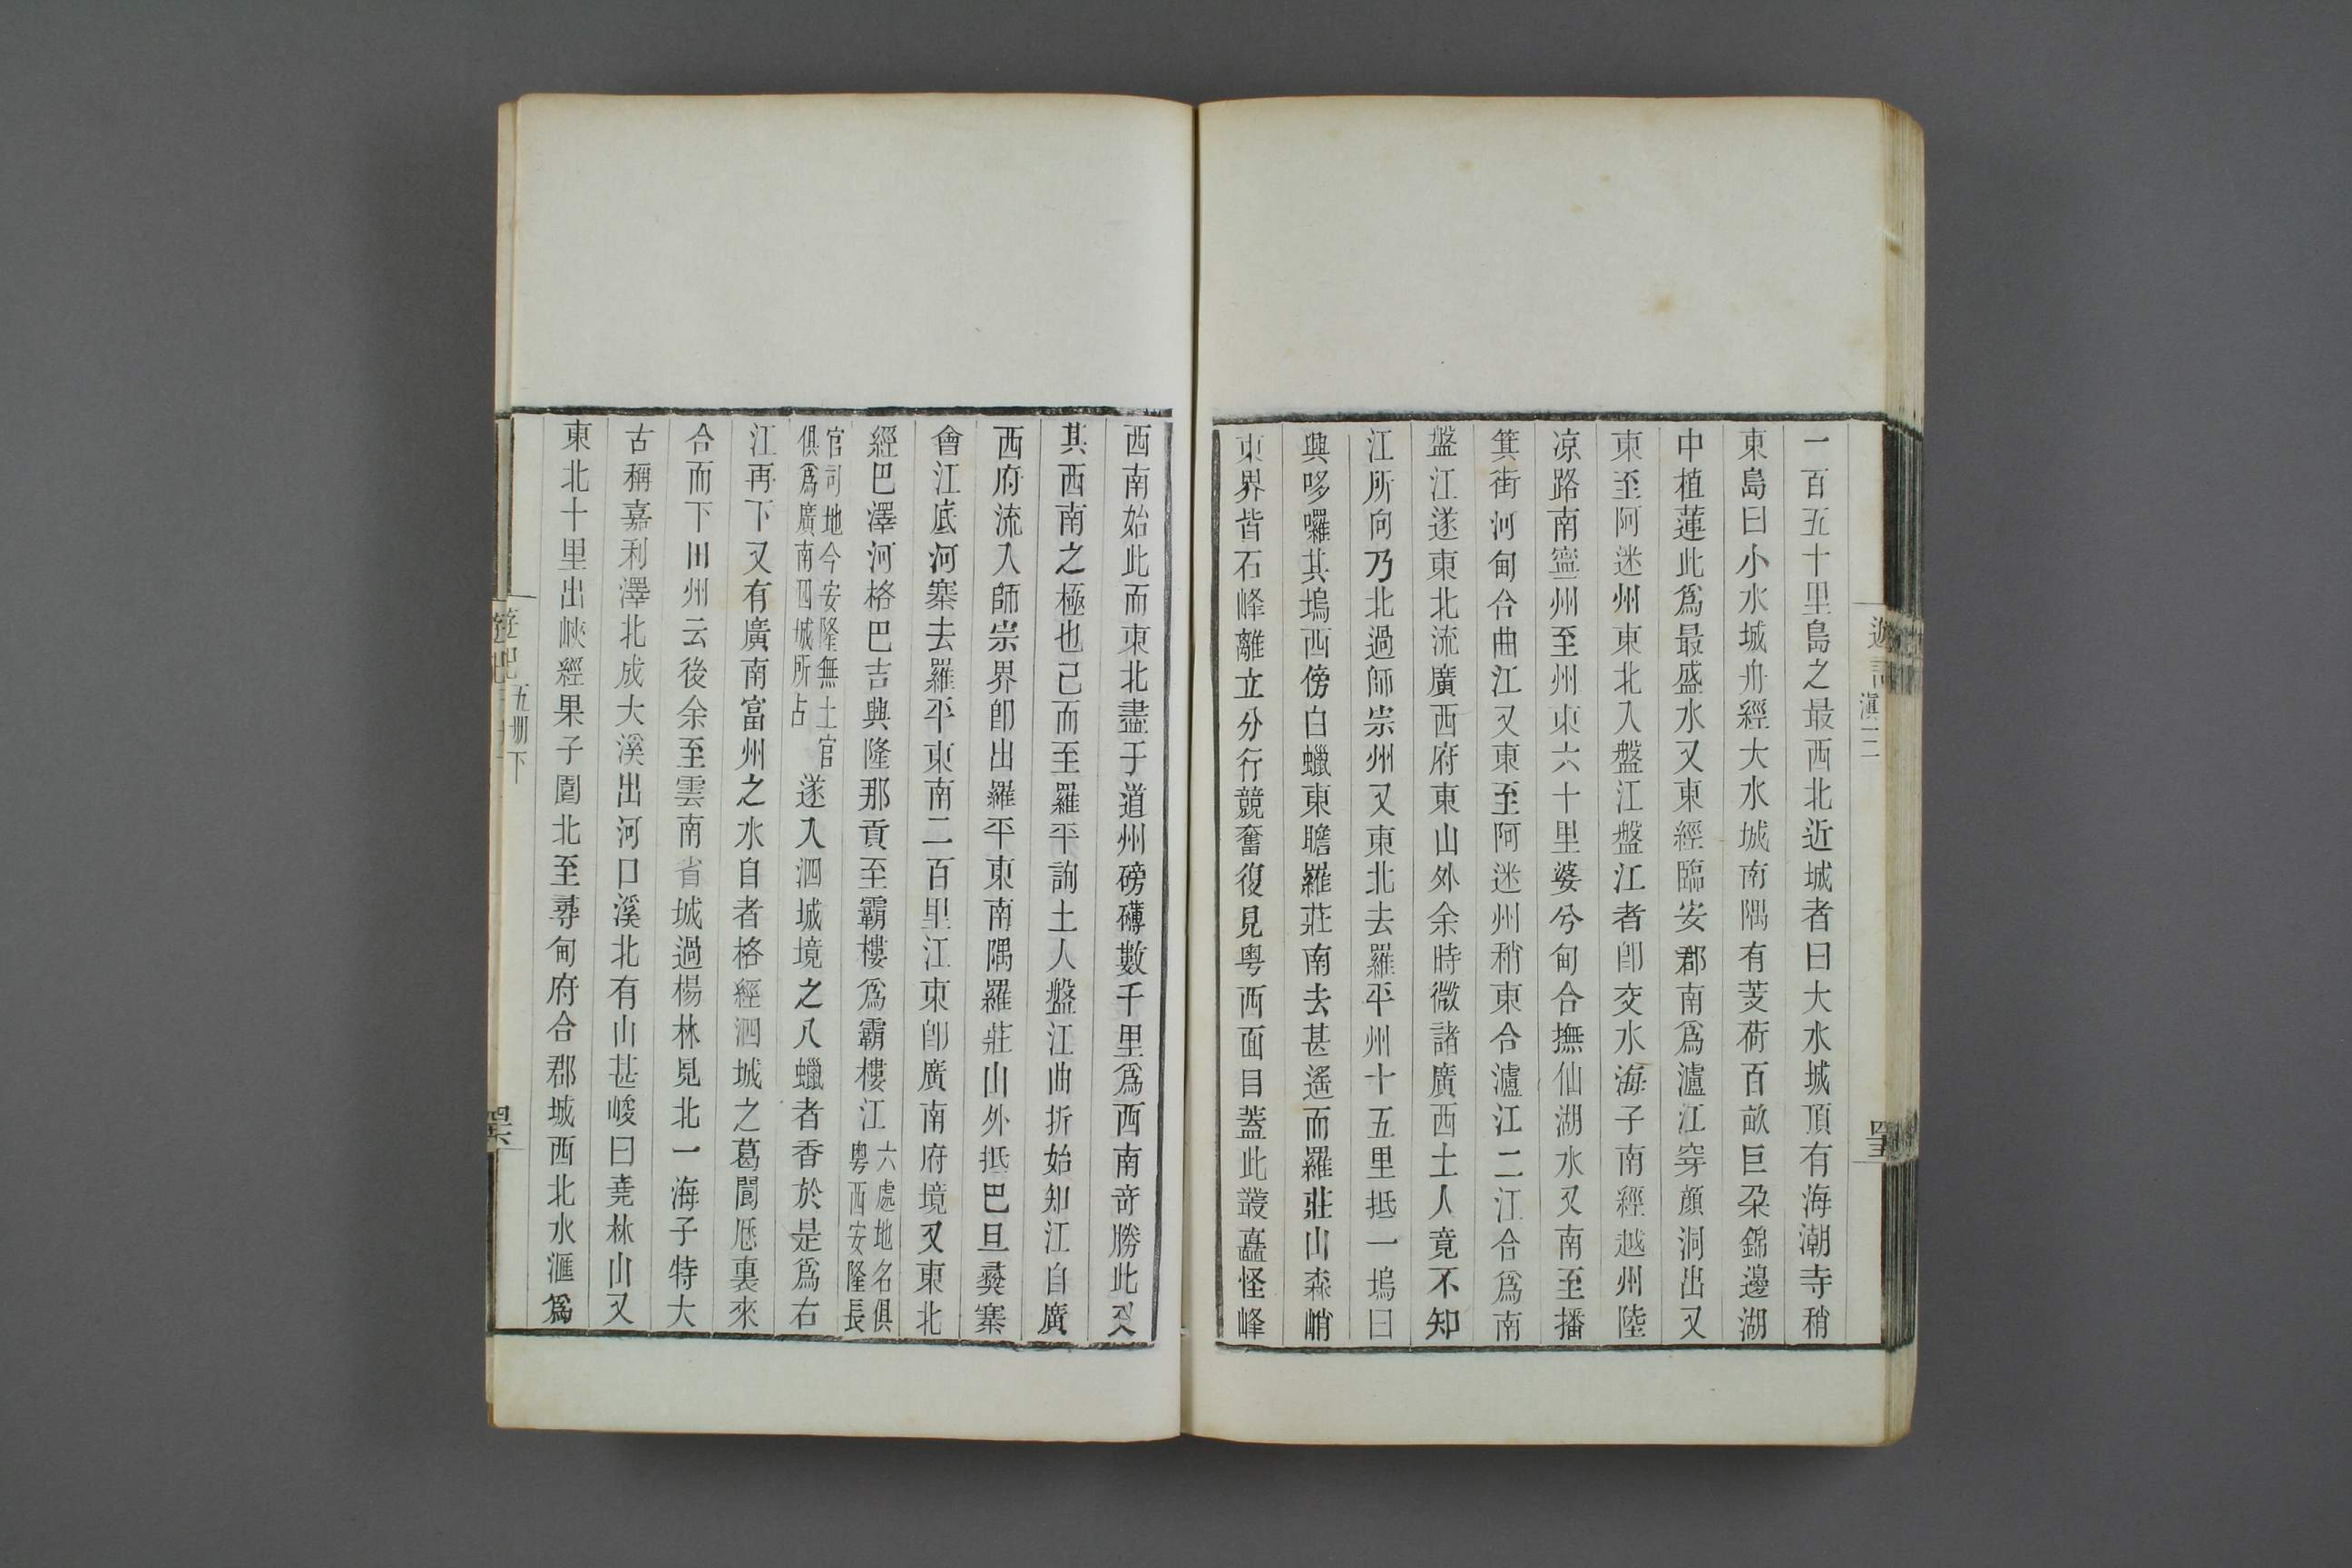 一百五十里島之最西北近城者曰大水城頂有海潮寺稍
東島曰小水城舟經大水城南隅有芰荷百畝巨朶錦邊湖
中植蓮此爲最盛水又東經臨安郡南爲瀘江穿顏洞出又
東至阿迷州東北入盤江盤江者卽交水海子南經越州陸
凉路南寧州至州東六十里婆兮甸合撫仙湖水又南至播
箕街河甸合曲江又東至阿迷州稍東合瀘江二江合爲南
盤江遂東北流廣西府東山外余時微諸廣西土人竟不知
江所向乃北過師宗州又東北去羅平州十五里抵一塢曰
興哆囉其塢西傍白蠟東瞻羅莊南去甚遙而羅莊山森峭
東界皆石峰離立分行競奮復見粤西面目蓋此叢矗怪峰
西南始此而東北盡于道州磅礡數千里爲西南奇勝此又
其西南之極也已而至羅平詢土人盤江曲折始知江自廣
西府流入師宗界卽出羅平東南隅羅莊山外抵巴旦彝寨
會江底河寨去羅平東南二百里江東卽廣南府境又東北
經巴澤河格巴吉興隆那貢至霸樓爲霸樓江六處地名俱粤西安隆長
官司地今安隆無土官俱爲廣南泗城所占遂入泗城境之八蠟者香於是爲右
江再下又有廣南富州之水自者格經泗城之葛閬厯裏來
合而下田州云後余至雲南省城過楊林見北一海子特大
古稱嘉利澤北成大溪出河口溪北有山甚峻曰堯林山又
東北十里出峽經果子園北至尋甸府合郡城西北水滙爲
滇三
五册下